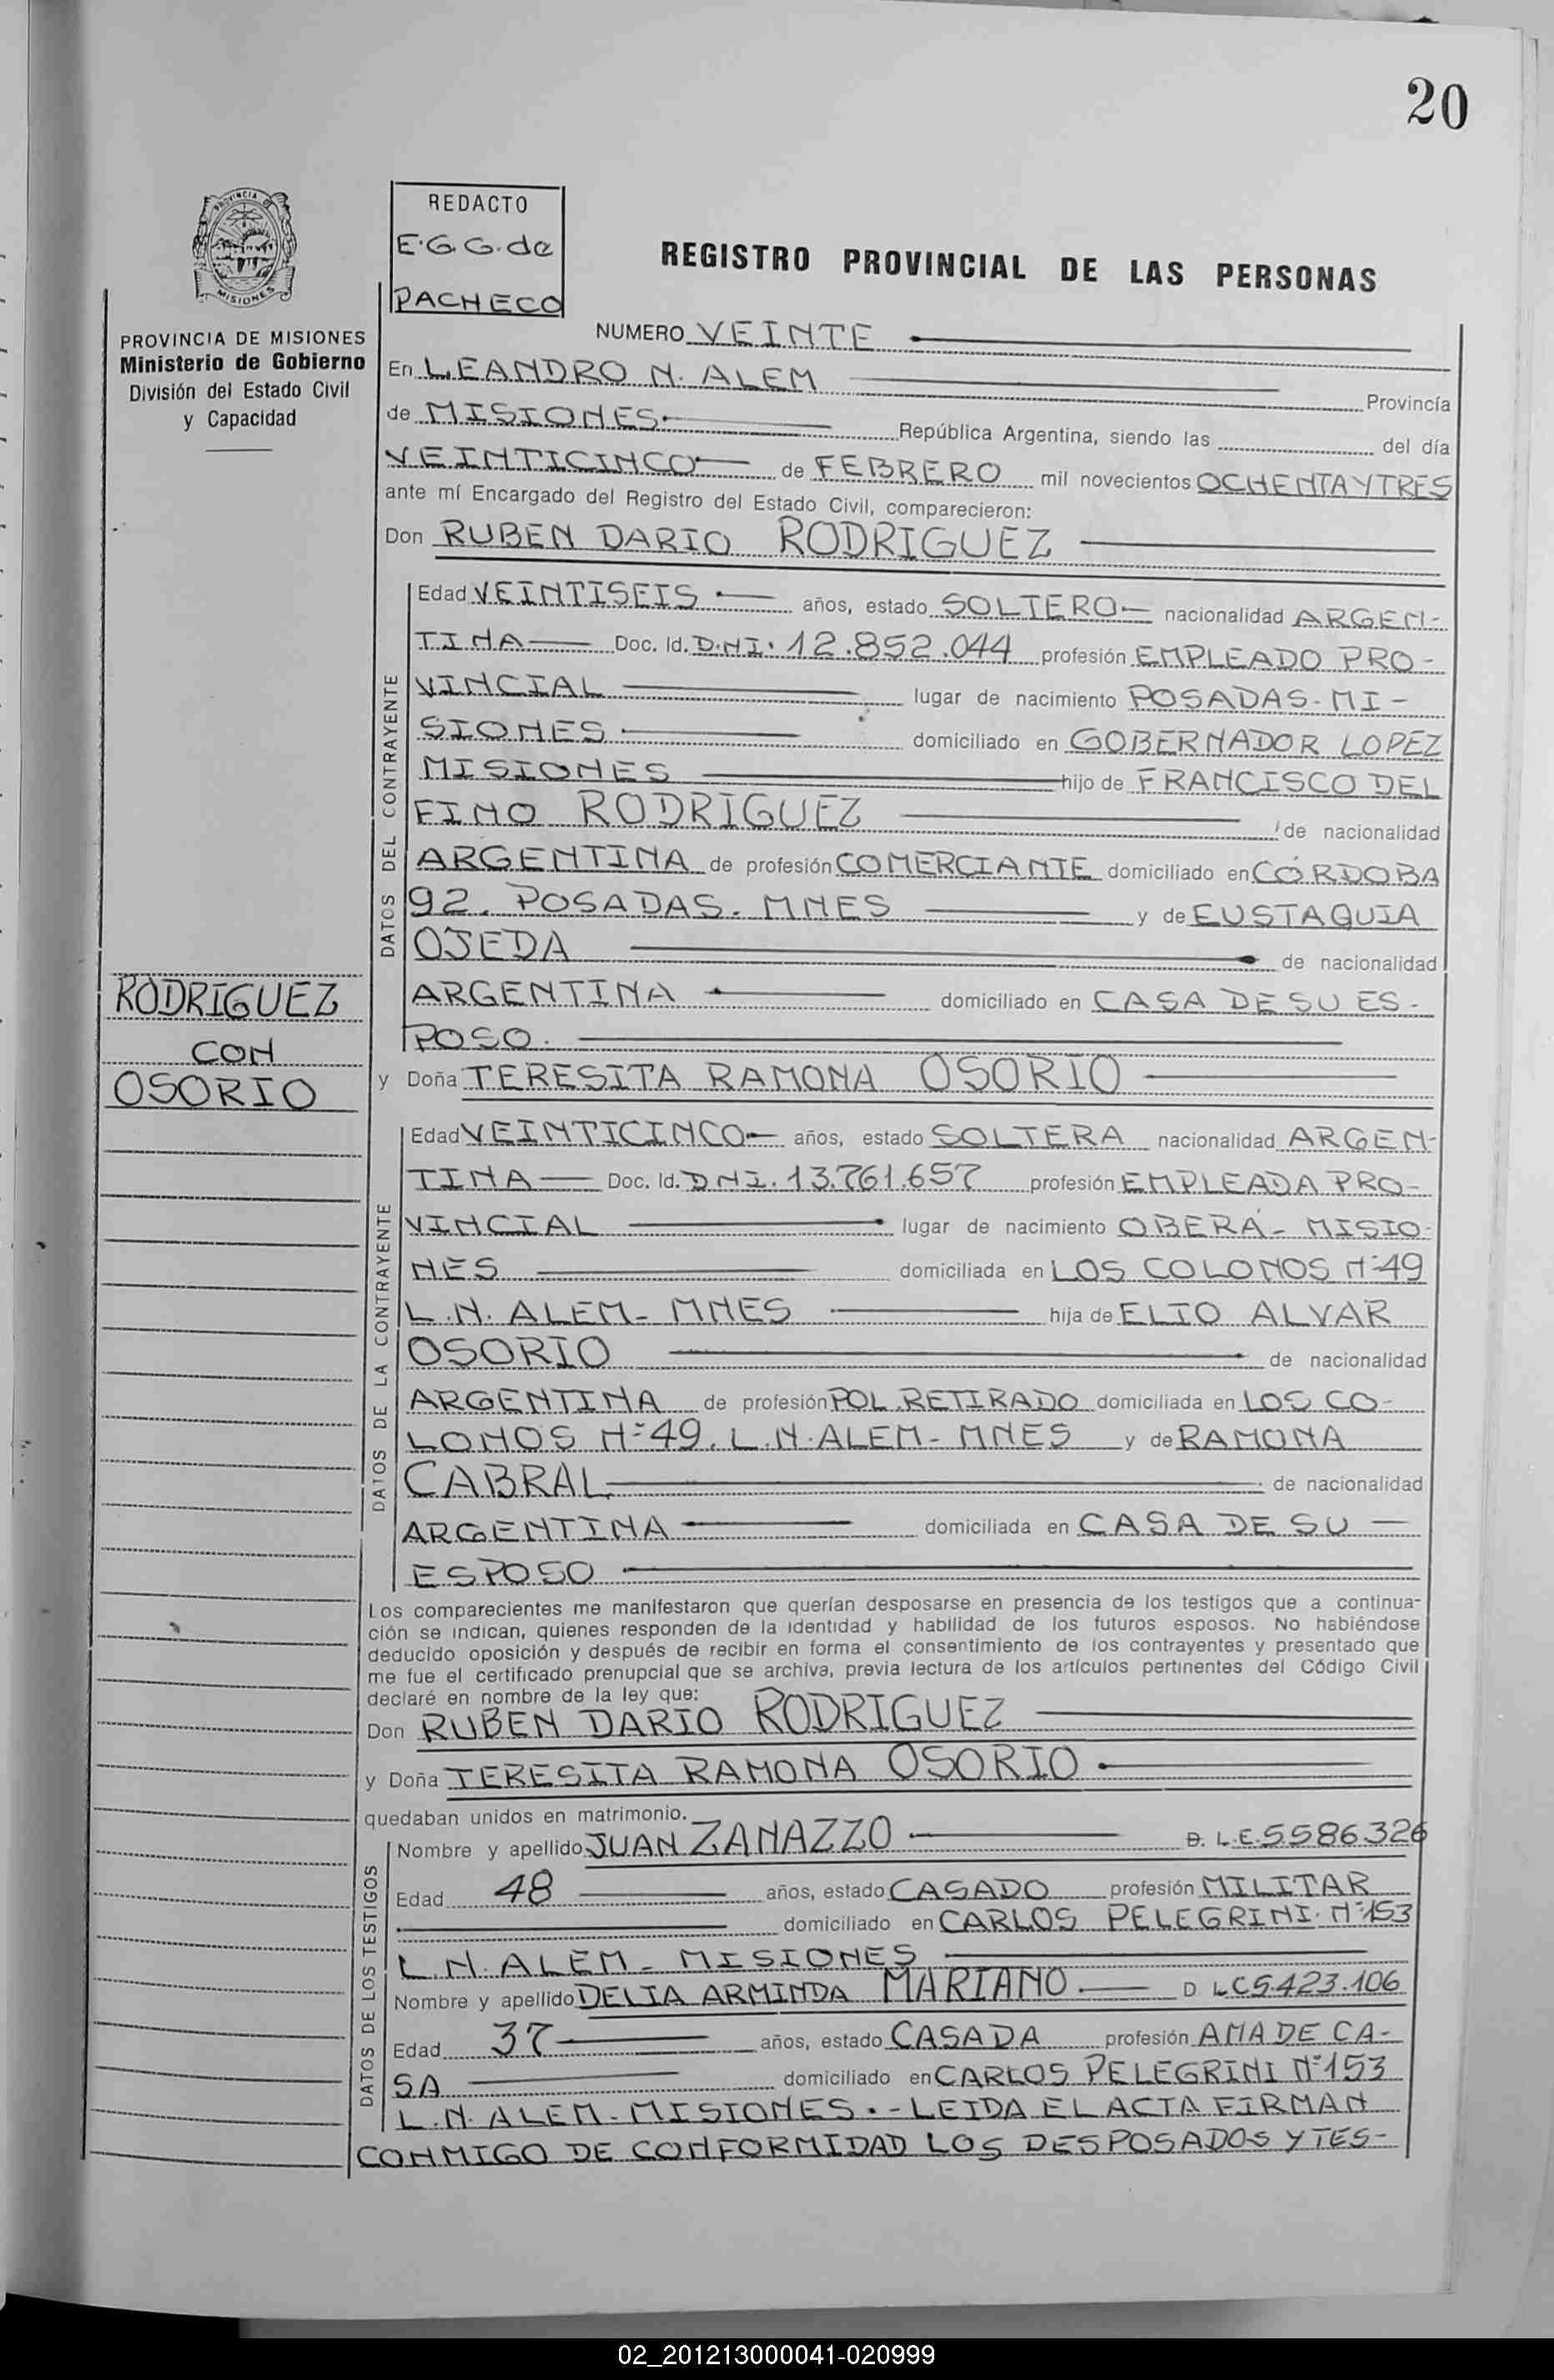 20
PROVINCIA DE
MISIONES
REDACTO
E.G.G. de
PACHECO
REGISTRO PROVINCIAL DE LAS PERSONAS
PROVINCIA DE MISIONES
Ministerio de Gobierno
División del Estado Civil
y Capacidad
NUMERO VEINTE
En LEANDRO N. ALEM Provincia
de MISIONES República Argentina, siendo las del día
VEINTICINCO de FEBRERO mil novecientos OCHENTA Y TRES
ante mí Encargado del Registro del Estado Civil, comparecieron:
Don RUBEN DARIO RODRIGUEZ
DATOS DEL CONTRAYENTE
Edad VEINTISEIS años, estado SOLTERO nacionalidad ARGEN-
TINA Doc. Id. D.N.I. 12.852.044 profesión EMPLEADO PRO-
VINCIAL lugar de nacimiento POSADAS-MI-
SIONES domiciliado en GOBERNADOR LOPEZ
MISIONES hijo de FRANCISCO DEL
FINO RODRIGUEZ de nacionalidad
ARGENTINA de profesión COMERCIANTE domiciliado en CÓRDOBA
92. POSADAS. MNES y de EUSTAQUIA
OJEDA de nacionalidad
ARGENTINA domiciliado en CASA DE SU ES-
POSO.
RODRIGUEZ
CON
OSORIO
y Doña TERESITA RAMONA OSORIO
DATOS DE LA CONTRAYENTE
Edad VEINTICINCO años, estado SOLTERA nacionalidad ARGEN-
TINA Doc. Id. DNI. 13.761.657 profesión EMPLEADA PRO-
VINCIAL lugar de nacimiento OBERÁ- MISIO-
NES domiciliada en LOS COLONOS Nº49
L.N. ALEM- MNES hija de ELIO ALVAR
OSORIO de nacionalidad
ARGENTINA de profesión POL. RETIRADO domiciliada en LOS CO-
LONOS Nº49. L.N. ALEM- MNES y de RAMONA
CABRAL de nacionalidad
ARGENTINA domiciliada en CASA DE SU
ESPOSO
Los comparecientes me manifestaron que querían desposarse en presencia de los testigos que a continua-
ción se indican, quienes responden de la identidad y habilidad de los futuros esposos. No habiéndose
deducido oposición y después de recibir en forma el consentimiento de los contrayentes y presentado que
me fue el certificado prenupcial que se archiva, previa lectura de los artículos pertinentes del Código Civil
declaré en nombre de la ley que:
Don RUBEN DARIO RODRIGUEZ
y Doña TERESITA RAMONA OSORIO
quedaban unidos en matrimonio.
DATOS DE LOS TESTIGOS
Nombre y apellido JUAN ZANAZZO D. L.E. 5586326
Edad 48 años, estado CASADO profesión MILITAR
domiciliado en CARLOS PELEGRINI. Nº153
L.N. ALEM- MISIONES
Nombre y apellido DELIA ARMINDA MARIANO D LC 5.423.106
Edad 37 años, estado CASADA profesión AMA DE CA-
SA domiciliado en CARLOS PELEGRINI Nº153
L.N. ALEM- MISIONES.- LEIDA EL ACTA FIRMAN
CONMIGO DE CONFORMIDAD LOS DESPOSADOS Y TES-
02_201213000041-020999